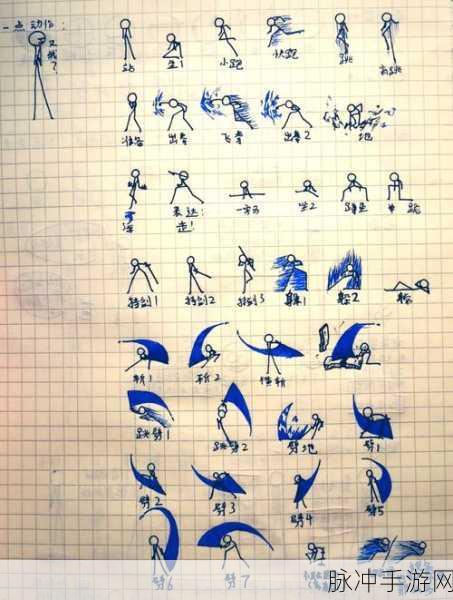 一点动作：
又我？
站 坐1 小跑 快跑 跳 高跳
准备 出拳 飞拳 出拳2 地
表达：
走！ 一字马 坐2 蹲坐 单跪
持剑1 持剑2 持剑3 躲1 躲2 躺
斩1 斩2 横斩
跳劈1 跳劈2 劈地 劈1
劈2 劈3 劈4 劈5
劈6 劈7
脉冲手游网